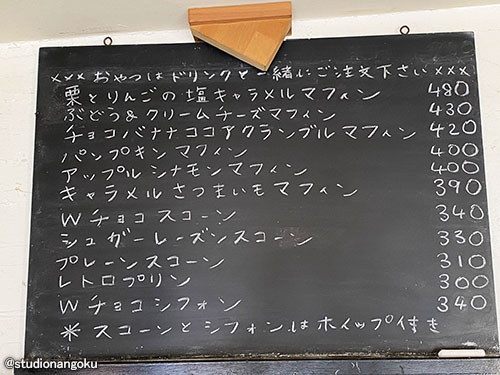 ×××おやつはドリンクと一緒にご注文下さい×××
栗とりんごの塩キャラメルマフィン 480
ぶどう&クリームチーズマフィン 430
チョコバナナココアクランブルマフィン 420
パンプキンマフィン 400
アップルシナモンマフィン 400
キャラメルさつまいもマフィン 390
Wチョコスコーン 340
シュガーレーズンスコーン 330
プレーンスコーン 310
レトロプリン 300
Wチョコシフォン 340
* スコーンとシフォンはホイップ付き
@studionangoku